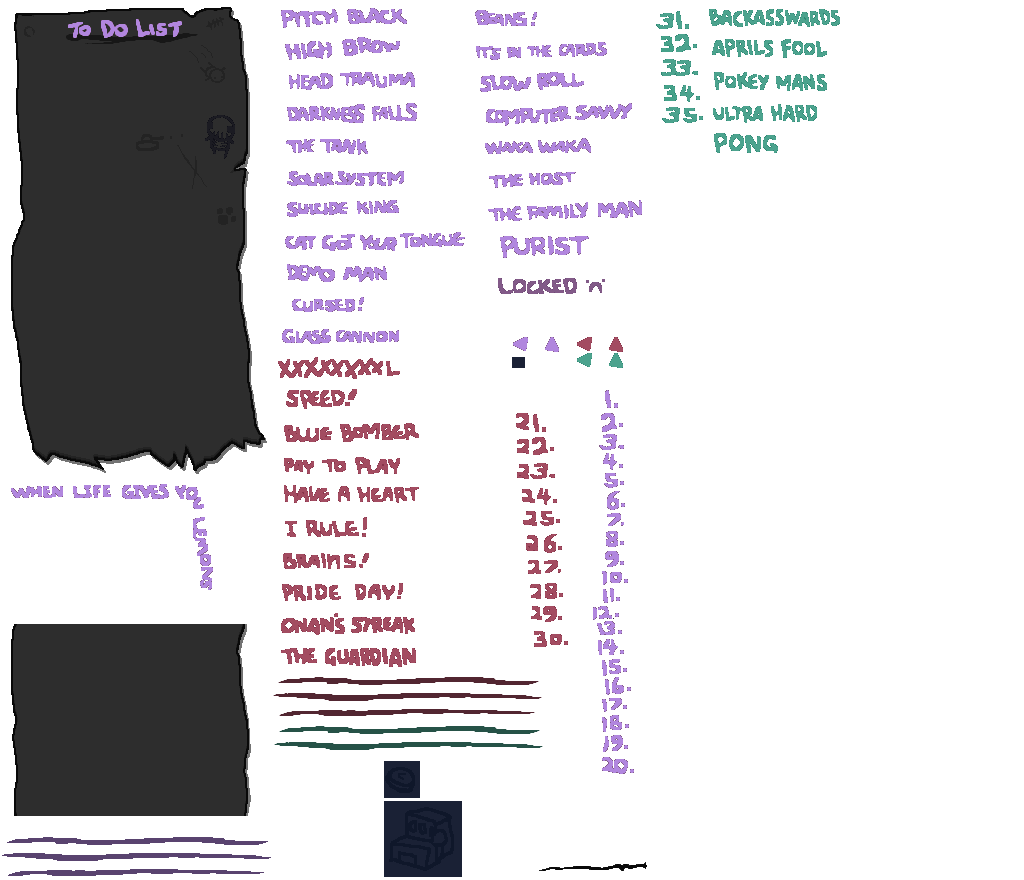 TO DO LIST
PITCH BLACK
HIGH BROW
HEAD TRAUMA
DARKNESS FALLS
THE TANK
SOLAR SYSTEM
SUICIDE KING
CAT GOT YOUR TONGUE
DEMO MAN
CURSED!
GLASS CANNON
XXXXXXXXL
SPEED!
BLUE BOMBER
PAY TO PLAY
HAVE A HEART
I RULE!
BRAINS!
PRIDE DAY!
ONAN'S STREAK
THE GUARDIAN
WHEN LIFE GIVES YOU LEMONS
BEANS!
IT'S IN THE CARDS
SLOW ROLL
COMPUTER SAVVY
WAKA WAKA
THE HOST
THE FAMILY MAN
PURIST
LOCKED
21.
22.
23.
24.
25.
26.
27.
28.
29.
30.
1.
2.
3.
4.
5.
6.
7.
8.
9.
10.
11.
12.
13.
14.
15.
16.
17.
18.
19.
20.
31.
32.
33.
34.
35.
BACKASSWARDS
APRILS FOOL
POKEY MANS
ULTRA HARD
PONG